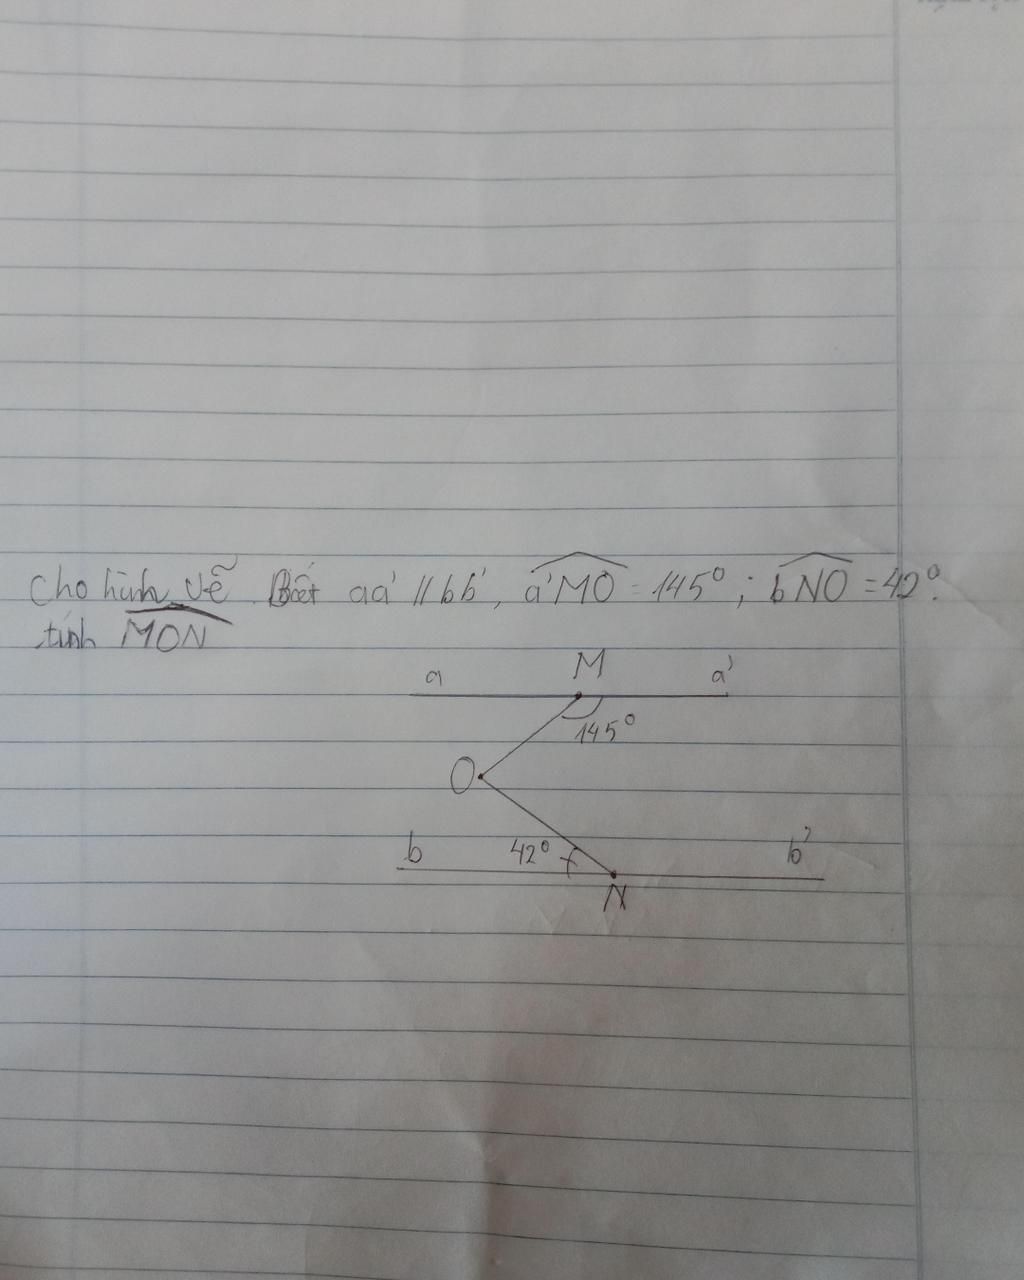 Cho hình vẽ. Biết aa' // bb', a'MO = 145°; bNO = 42°.
tính MON
a M a'
145°
O
b 42° b'
N